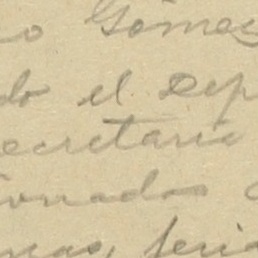 o Gómez
do el Dep
ecretaria
ionados
nas, seri